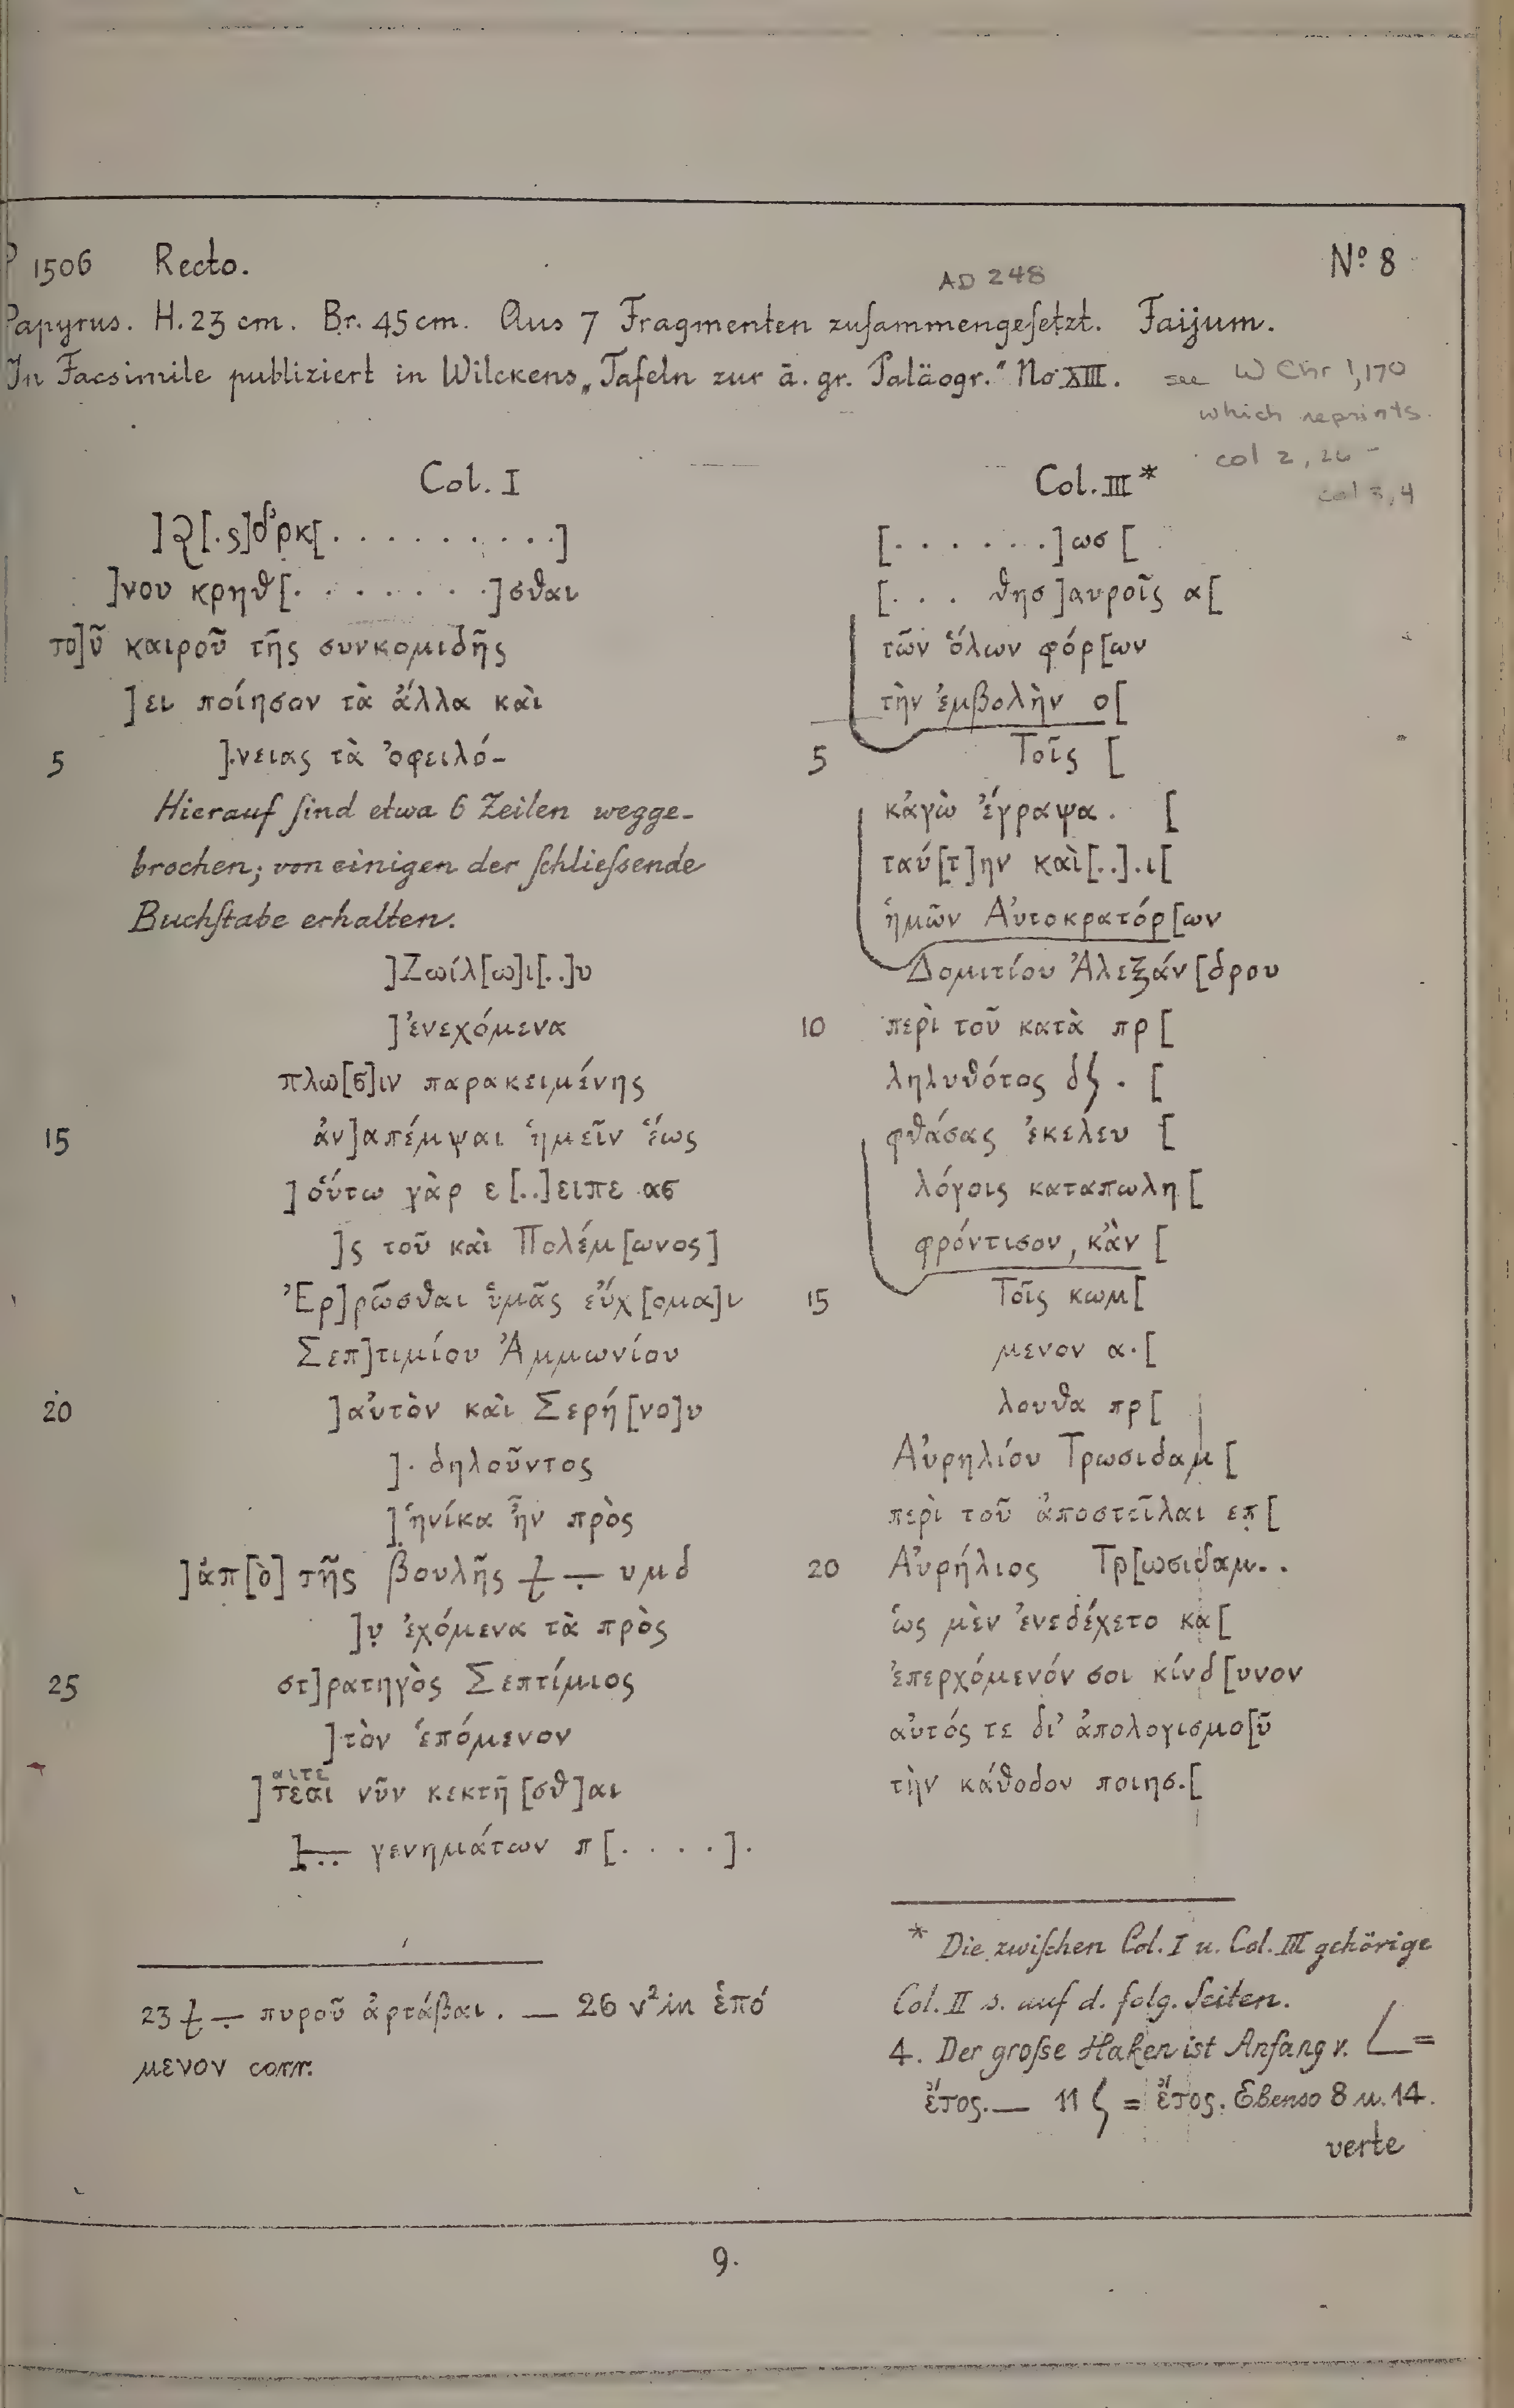 P 1506 Recto. Nº 8
AD 248
Papyrus. H. 23 cm. Br. 45 cm. Aus 7 Fragmenten zusammengesetzt. Faijum.
In Facsimile publiziert in Wilckens „Tafeln zur ä. gr. Paläogr." No XIII. see W Chr 1,170
which reprints
col 2, 26 -
col 3, 4
Col. I
]νου κρηθ[. . . . . . . .]σθαι
το]ῦ καιροῦ τῆς συνκομιδῆς
]ει ποίησον τὰ ἄλλα καὶ
5 ].νειας τὰ ὀφειλό-
Hierauf sind etwa 6 Zeilen wegge-
brochen; von einigen der schliessende
Buchstabe erhalten.
]Ζωίλ[ω]ι[..]υ
]ἐνεχόμενα
πλω[σ]ιν παρακειμένης
15 ἀν]απέμψαι ἡμεῖν ἕως
]οὕτω γὰρ ε[..]ειπε ασ
]ς τοῦ καὶ Πολέμ[ωνος]
Ἐρ]ρῶσθαι ὑμᾶς εὔχ[ομα]ι
Σεπ]τιμίου Ἀμμωνίου
20 ]αὐτὸν καὶ Σερή[νο]υ
]. δηλοῦντος
]ἡνίκα ἦν πρὸς
]ἀπ[ὸ] τῆς βουλῆς υμδ
]υ̣ ἐχόμενα τὰ πρὸς
25 στ]ρατηγὸς Σεπτίμιος
]τὸν ἑπόμενον
αιτε
]τεσι νῦν κεκτῆ[σθ]αι
γενημάτων π[. . . .].
23 πυροῦ ἀρτάβαι. — 26 ν² in ἑπό
μενον corr.
Col. III*
[. . . . . . .]ωσ[
[. . . θησ]αυροῖς α[
τῶν ὅλων φόρ[ων
τὴν ἐμβολὴν ο[
5 Τοῖς [
κἀγὼ ἔγραψα. [
ταύ[τ]ην καὶ[..].ι[
ἡμῶν Αὐτοκρατόρ[ων
Δομιτίου Ἀλεξάν[δρου
10 περὶ τοῦ κατὰ πρ[
ληλυθότος δϛ . [
φθάσας ἐκέλευ [
λόγοις καταπωλη[
φρόντισον, κἂν [
15 Τοῖς κωμ[
μενον α.[
λουθα πρ[
Αὐρηλίου Τρωσιδαμ[
περὶ τοῦ ἀποστεῖλαι επ̣[
20 Αὐρήλιος Τρ[ωσιδαμ..
ὡς μὲν ἐνεδέχετο κα[
ἐπερχόμενόν σοι κίνδ[υνον
αὐτός τε δι' ἀπολογισμο[ῦ
τὴν κάθοδον ποιησ.[
* Die zwischen Col. I u. Col. III gehörige
Col. II s. auf d. folg. Seiten.
4. Der grosse Haken ist Anfang v. L =
ἔτος. — 11 ϛ = ἔτος. Ebenso 8 u. 14.
verte
9.